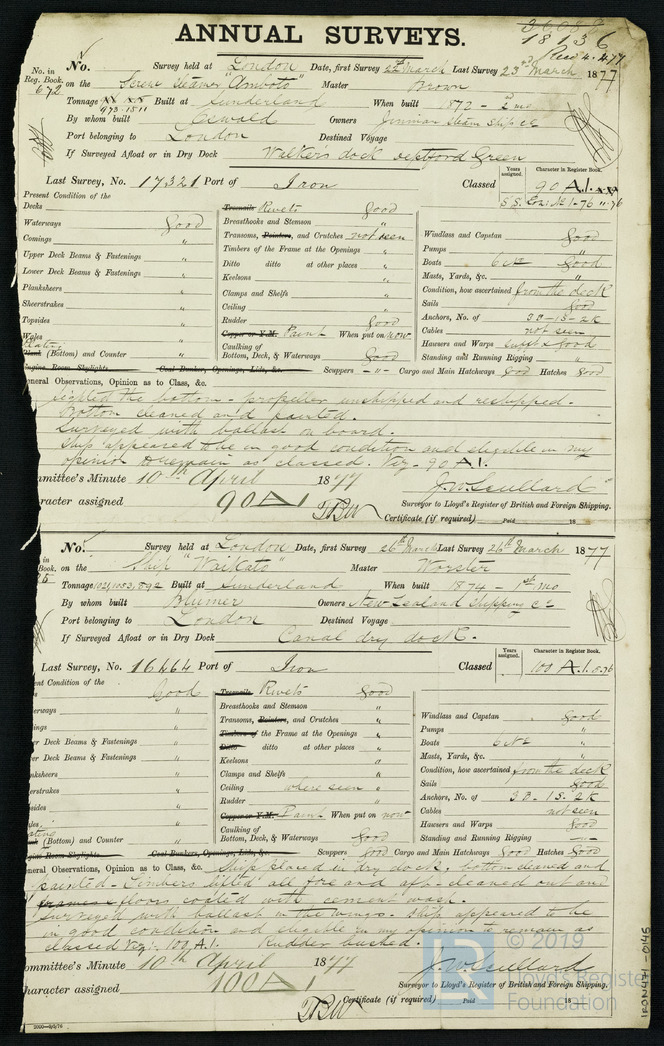 ANNUAL SURVEYS.
36088
18136
Recd 4.4.77
No. in Reg. Book. 672
No. Survey held at London Date, first Survey 22nd March Last Survey 23rd March 1877
on the Screw Steamer "Amboto" Master Brown
Tonnage 973.1511 Built at Sunderland When built 1872 - 2 mo
By whom built Oswald Owners Jenman Steam Ship Co
Port belonging to London Destined Voyage
If Surveyed Afloat or in Dry Dock Walker's dock Deptford Green
Last Survey, No. 17321 Port of Iron Classed
Years assigned.
Character in Register Book.
90 A.1.
S.S. Lon: No 1-76 11-76
Present Condition of the
Decks
Waterways Good
Comings "
Upper Deck Beams & Fastenings "
Lower Deck Beams & Fastenings "
Planksheers "
Sheerstrakes "
Topsides "
Wales "
Plating
Plank (Bottom) and Counter "
Engine Room Skylights Coal Bunker, Openings, Lids, &c.
Treenails Rivets Good
Breasthooks and Stemson "
Transoms, Pointers, and Crutches not seen
Timbers of the Frame at the Openings "
Ditto ditto at other places "
Keelsons "
Clamps and Shelfs "
Ceiling "
Rudder Good
Copper or Y.M. Paint When put on now
Caulking of
Bottom, Deck, & Waterways Good
Scuppers - " - Cargo and Main Hatchways Good Hatches Good
Windlass and Capstan Good
Pumps "
Boats 6 in No Good
Masts, Yards, &c. "
Condition, how ascertained from the deck
Sails Good
Anchors, No. of 3B-1S-2K
Cables not seen
Hawsers and Warps sufft & Good
Standing and Running Rigging "
General Observations, Opinion as to Class, &c.
sighted the bottom - propeller unshipped and reshipped.
Bottom cleaned and painted.
Surveyed with ballast on board.
Ship appeared to be in good condition and eligible in my
opinion to remain as classed. Viz - 90 A.1.
Committee's Minute 10th April 1877
Character assigned 90 A1
TBW
J.W. Scullard
Surveyor to Lloyd's Register of British and Foreign Shipping.
Certificate (if required) Paid 18
No. Survey held at London Date, first Survey 26th March Last Survey 26th March 1877
on the Ship "Waikato" Master Worster
Tonnage 1021.1053.892 Built at Sunderland When built 1874 - 1st mo
By whom built Blumer Owners New Zealand Shipping Co
Port belonging to London Destined Voyage
If Surveyed Afloat or in Dry Dock Canal dry dock.
Last Survey, No. 16464 Port of Iron Classed
Years assigned.
Character in Register Book.
100 A.1. 5.76
Present Condition of the
Good
Waterways "
Comings "
Upper Deck Beams & Fastenings "
Lower Deck Beams & Fastenings "
Planksheers "
Sheerstrakes "
Topsides "
Wales "
Plating
Plank (Bottom) and Counter "
Engine Room Skylights Coal Bunkers, Openings, Lids, &c.
Treenails Rivets Good
Breasthooks and Stemson "
Transoms, Pointers, and Crutches "
Timbers of the Frame at the Openings "
Ditto ditto at other places "
Keelsons "
Clamps and Shelfs "
Ceiling where seen "
Rudder "
Copper or Y.M. Paint When put on now
Caulking of
Bottom, Deck, & Waterways Good
Scuppers Good Cargo and Main Hatchways Good Hatches Good
Windlass and Capstan Good
Pumps "
Boats 6 in No "
Masts, Yards, &c. "
Condition, how ascertained from the deck
Sails Good
Anchors, No. of 3B-1S-2K
Cables not seen
Hawsers and Warps Good
Standing and Running Rigging "
General Observations, Opinion as to Class, &c. Ship placed in dry dock, bottom cleaned and
painted - Limbers lifted all fore and aft - cleaned out and
frames & floors coated with cement wash.
Surveyed with ballast in the wings. Ship appeared to be
in good condition and eligible in my opinion to remain as
classed Viz: 100 A.1. Rudder bushed.
Committee's Minute 10th April 1877
Character assigned 100 A1
TBW
J.W. Scullard
Surveyor to Lloyd's Register of British and Foreign Shipping.
Certificate (if required) Paid 18
2000—8/5/76
IRON471-0145
LR
© 2019
Lloyd's Register
Foundation